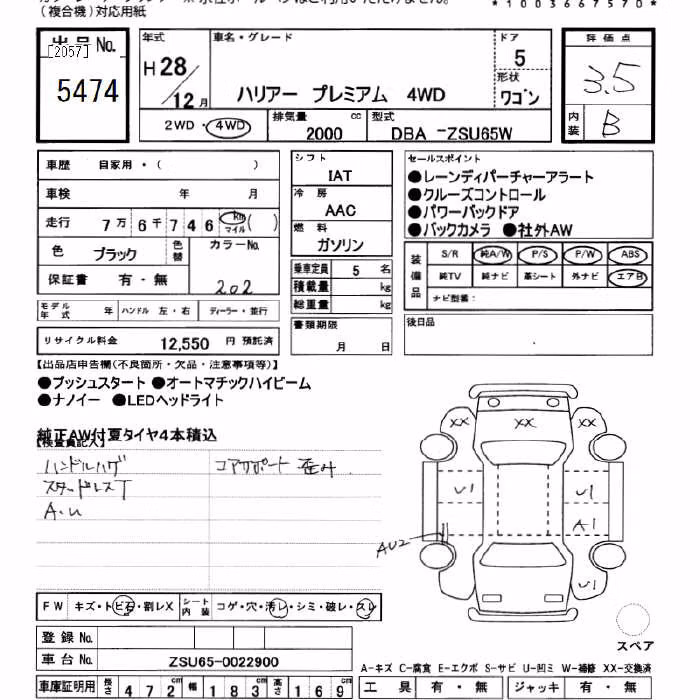 (複合機)対応用紙
*1003667570*
出品No. 年式 車名・グレード ドア 評価点
[2057] H28/12月 ハリアー プレミアム 4WD 5 3.5
5474 形状 ワゴン
2WD・4WD 排気量 2000 cc 型式 DBA-ZSU65W 内装 B
車歴 自家用・( )
車検 年 月
走行 7万6千746 km マイル ( )
色 ブラック 色替 カラーNo. 202
保証書 有・無
モデル年式 年 ハンドル 左・右 ディーラー・並行
リサイクル料金 12,550 円 預託済
シフト IAT
冷房 AAC
燃料 ガソリン
乗車定員 5 名
積載量 kg
総重量 kg
書類期限 月 日
セールスポイント
●レーンディパーチャーアラート
●クルーズコントロール
●パワーバックドア
●バックカメラ ●社外AW
装備品 S/R 純A/W P/S P/W ABS
純TV 純ナビ 革シート 外ナビ エアB
ナビ型番:
後日品
【出品店申告欄(不良箇所・欠品・注意事項等)】
●プッシュスタート ●オートマチックハイビーム
●ナノイー ●LEDヘッドライト
純正AW付夏タイヤ4本積込
【検査員記入】
ハンドルハゲ コアサポート 歪み
スタッドレスT
A.U
XX XX
U1 U1
A1
AU2
U1
スペア
FW キズ・トビ石・割レX シート内装 コゲ・穴・汚レ・シミ・破レ・スレ
登録No.
車台No. ZSU65-0022900
A-キズ C-腐食 E-エクボ S-サビ U-凹ミ W-補修 XX-交換済
車庫証明用 長さ 472 cm 幅 183 cm 高さ 169 cm 工具 有・無 ジャッキ 有・無